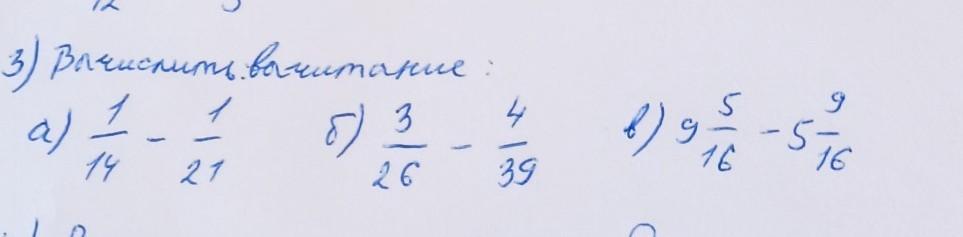 3) Вычислить вычитание:
а) 1/14 - 1/21 б) 3/26 - 4/39 в) 9 5/16 - 5 9/16